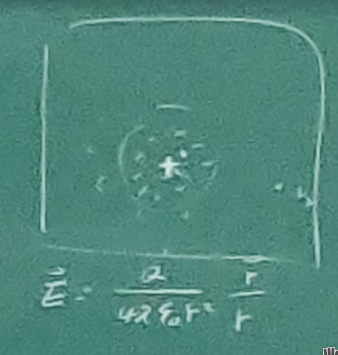 +
E⃗ = Q / 4πε₀r² r⃗ / r